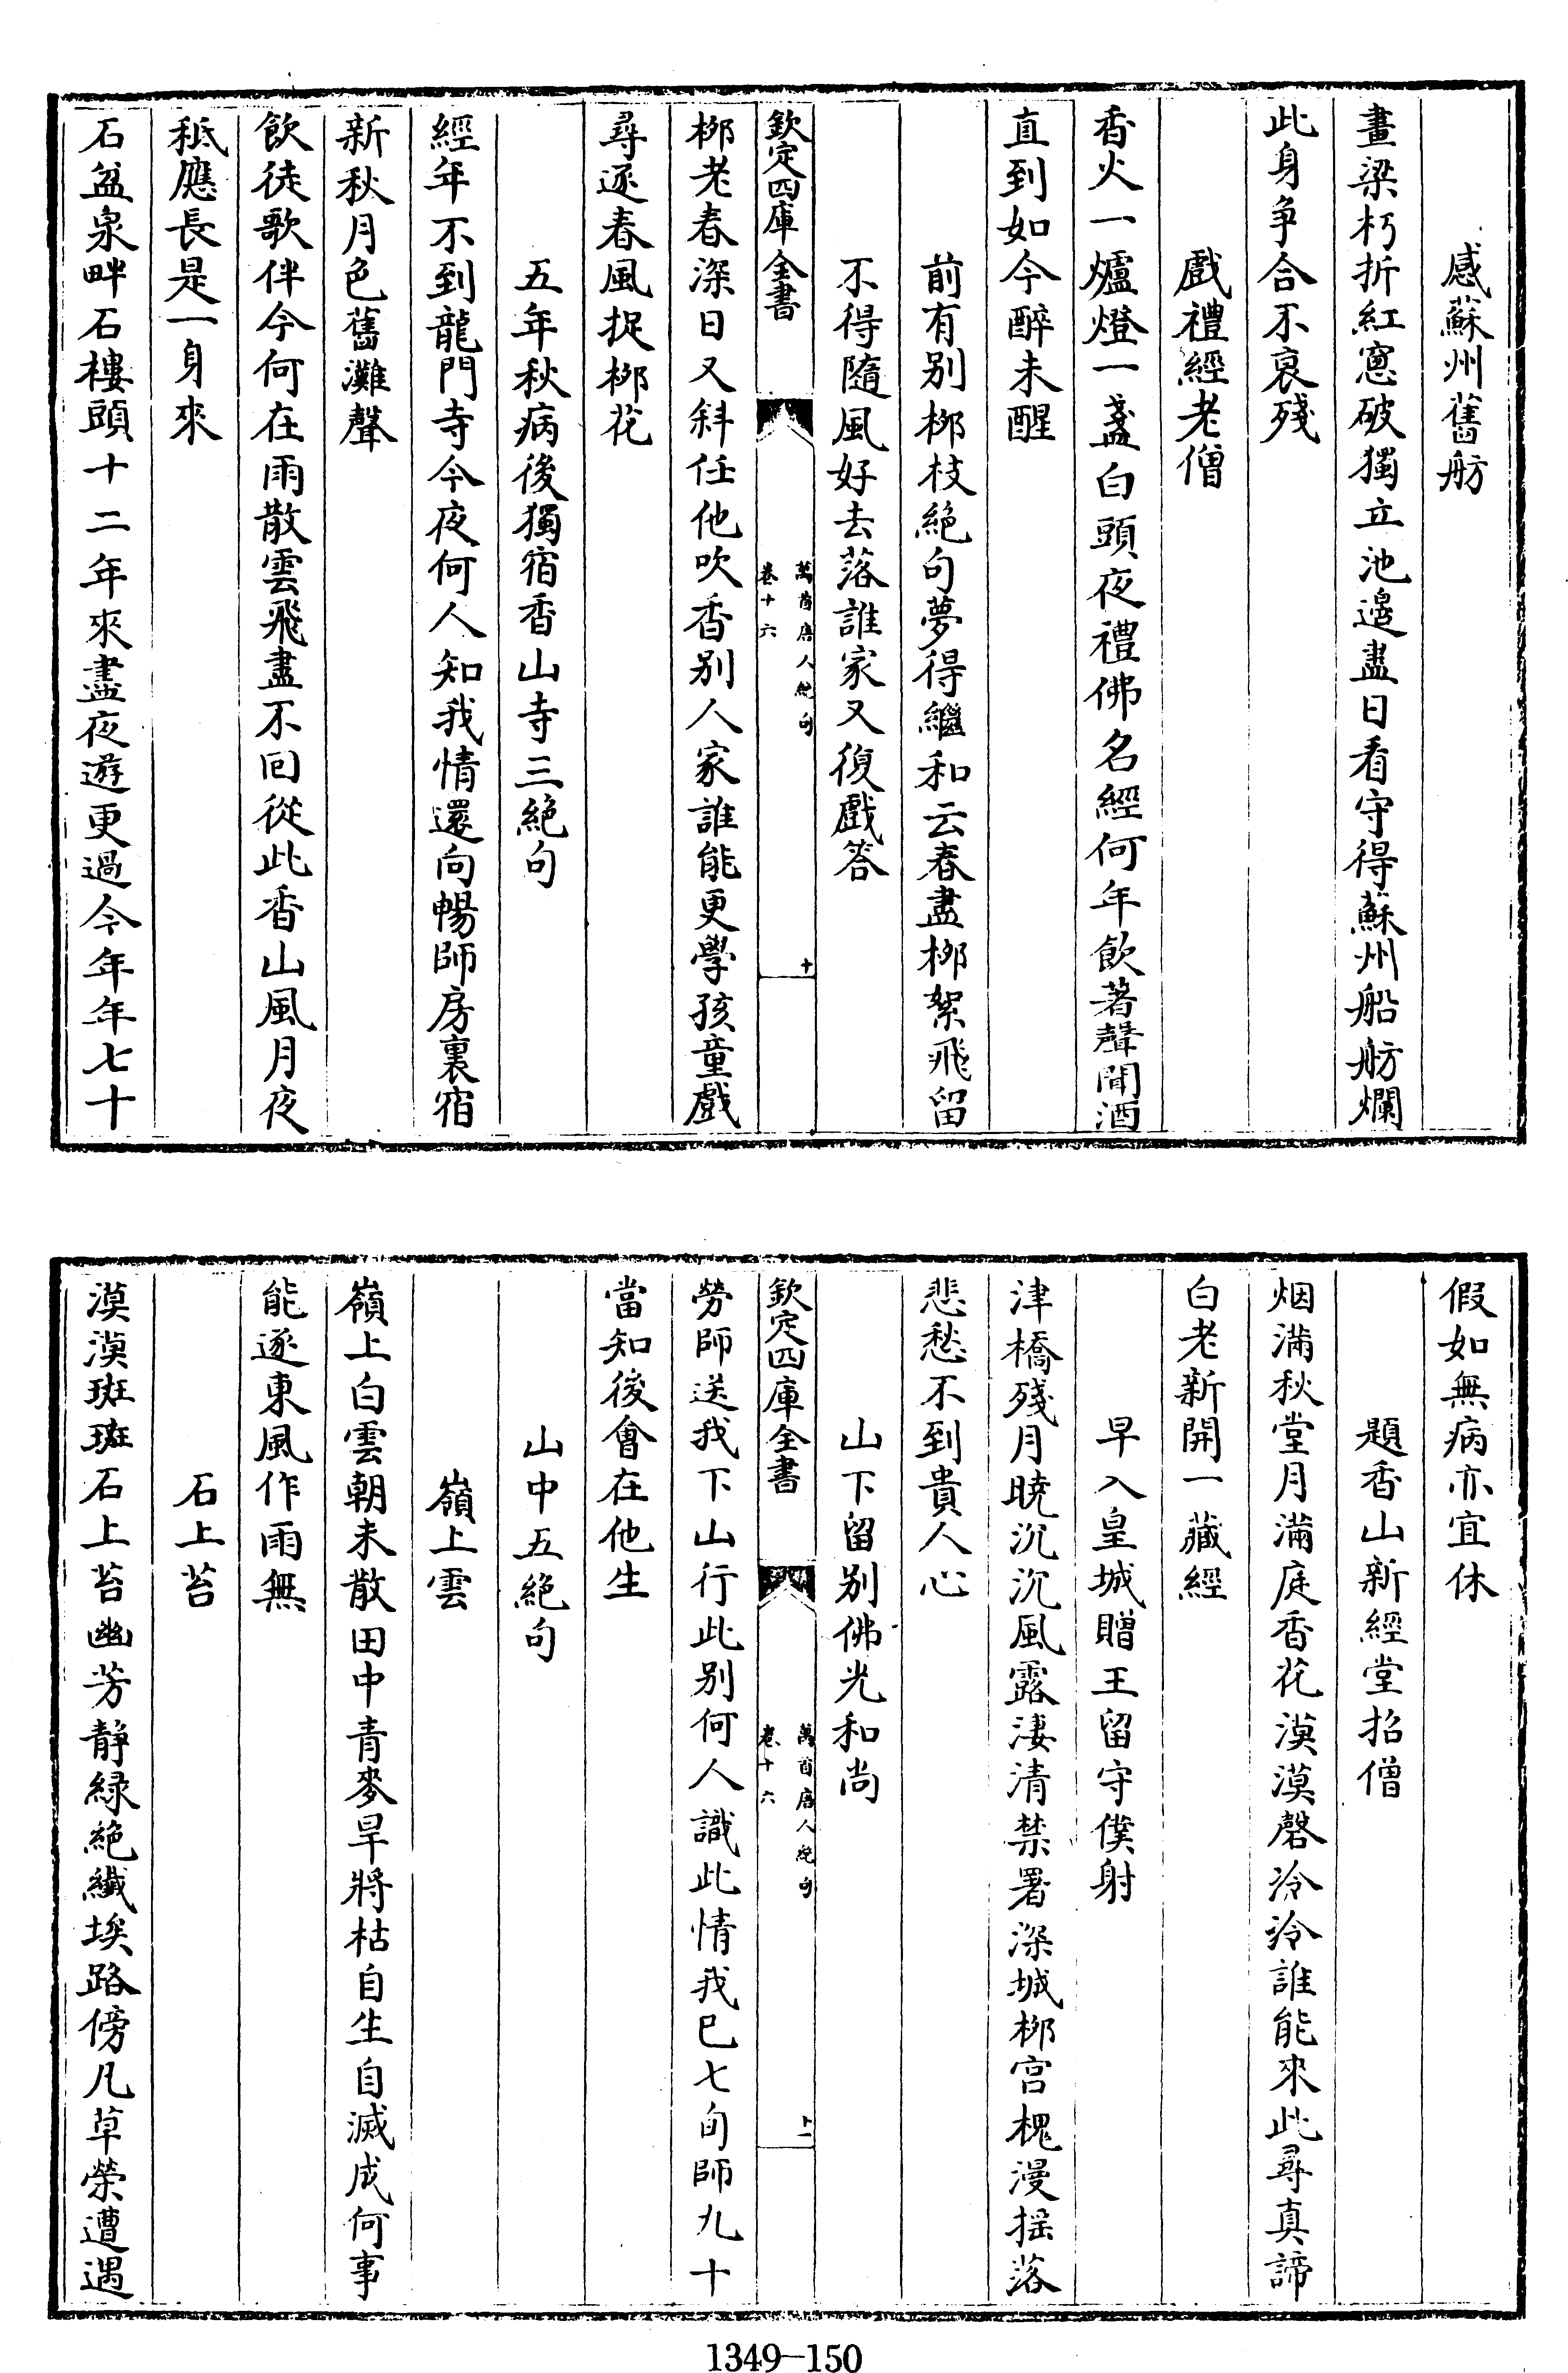 感蘇州舊舫
畫梁朽折紅窻破獨立池邊盡日看守得蘇州船舫爛
此身争合不衰殘
戲禮經老僧
香火一爐燈一盞白頭夜禮佛名經何年飲著聲聞酒
直到如今醉未醒
前有别栁枝絶句夢得繼和云春盡栁絮飛留
不得隨風好去落誰家又復戲答
栁老春深日又斜任他吹香别人家誰能更學孩童戲
尋逐春風捉栁花
五年秋病後獨宿香山寺三絶句
經年不到龍門寺今夜何人知我情還向暢師房裏宿
新秋月色舊灘聲
飲徒歌伴今何在雨散雲飛盡不回從此香山風月夜
秪應長是一身來
石盆泉畔石樓頭十二年來晝夜遊更過今年年七十
欽定四庫全書
萬首唐人絶句
卷十六
十
假如無病亦宜休
題香山新經堂招僧
烟滿秋堂月滿庭香花漠漠磬泠泠誰能來此尋真諦
白老新開一藏經
早入皇城贈王留守僕射
津橋殘月曉沉沉風露淒清禁署深城栁宫槐漫揺落
悲愁不到貴人心
山下留别佛光和尚
勞師送我下山行此别何人識此情我已七旬師九十
當知後會在他生
山中五絶句
嶺上雲
嶺上白雲朝未散田中青麥旱將枯自生自滅成何事
能逐東風作雨無
石上苔
漠漠斑斑石上苔幽芳静緑絶纎埃路傍凡草榮遭遇
欽定四庫全書
萬首唐人絶句
卷十六
十一
1349—150